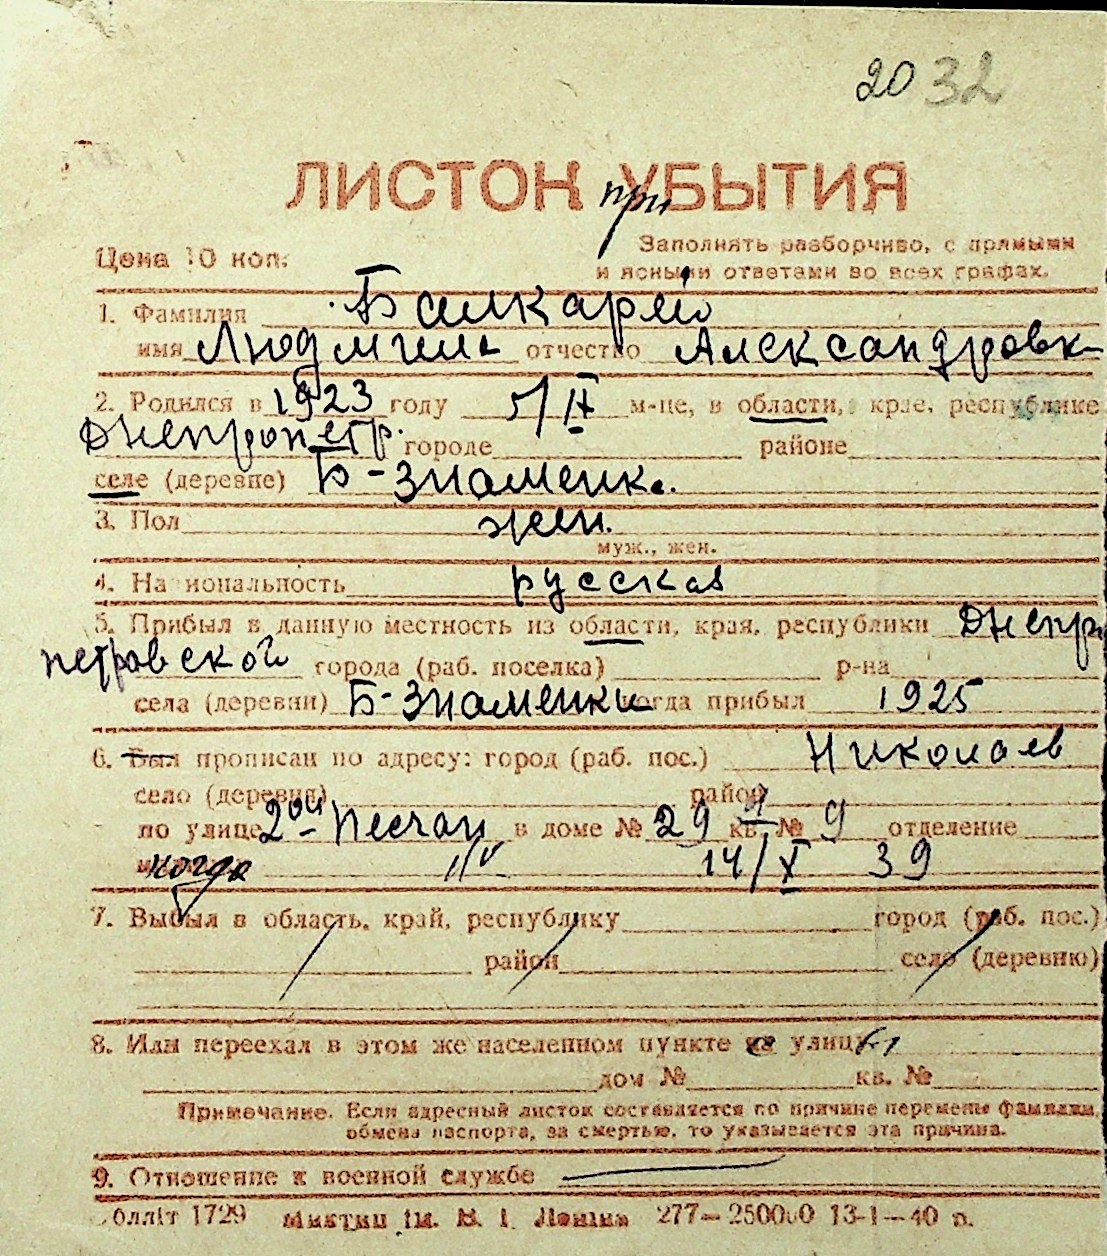 2032
ЛИСТОК при УБЫТИЯ
Цена 10 коп. Заполнять разборчиво, с прямыми
и ясными ответами во всех графах.
1. Фамилия Балкарей
имя Людмила отчество Александровн
2. Родился в 1923 году 5/II м-це, в области, крае, республике
Днепропетр. городе районе
селе (деревне) Б-Знаменка.
3. Пол жен.
муж., жен.
4. Национальность русская
5. Прибыл в данную местность из области, края, республики Днепро
петровской города (раб. поселка) р-на
села (деревни) Б-Знаменки когда прибыл 1925
6. Был прописан по адресу: город (раб. пос.) Николаев
село (деревня) район
по улице 2ой Песчан в доме № 29 кв. № 9 отделение
когда 14/X 39
7. Выбыл в область, край, республику город (раб. пос.)
район село (деревню)
8. Или переехал в этом же населенном пункте на улицу
дом № кв. №
Примечание. Если адресный листок составляется по причине перемены фамилии,
обмена паспорта, за смертью, то указывается эта причина.
9. Отношение к военной службе
Обллiт 1729 iм. В. I. Ленiна 277—250000 13-1—40 р.